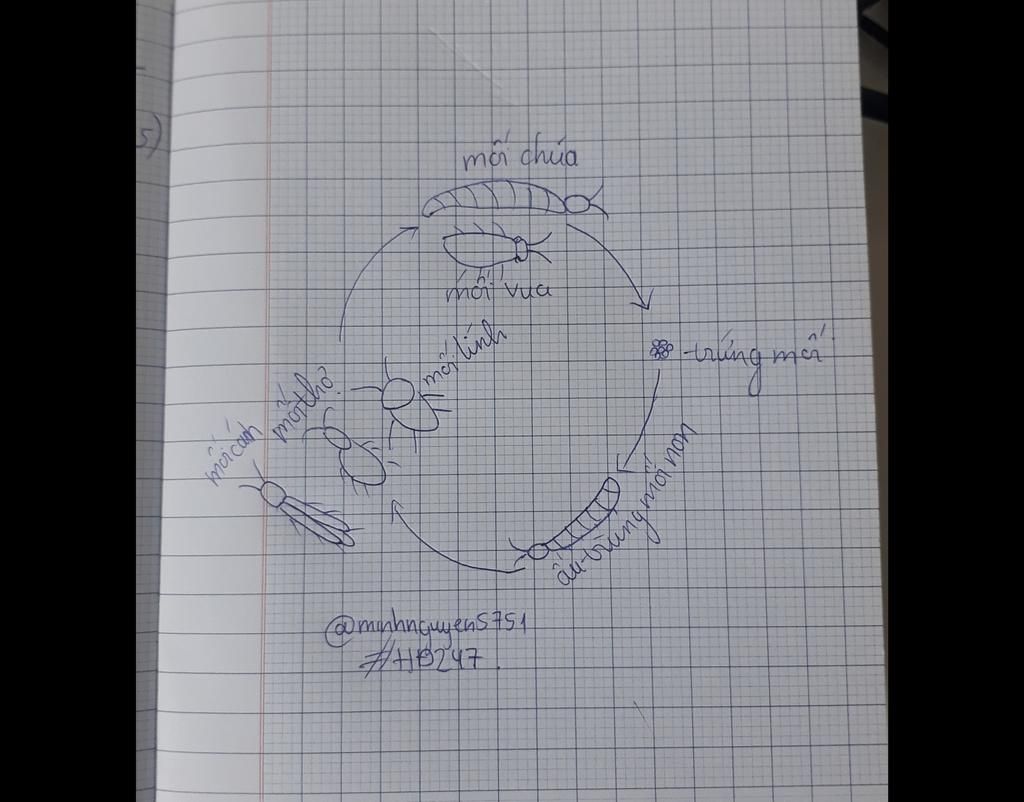 5)
mối chúa
mối vua
trứng mối
mối lính
mối thợ
mối cánh
ấu trùng mối non
@minhnguyen5751
#HB247